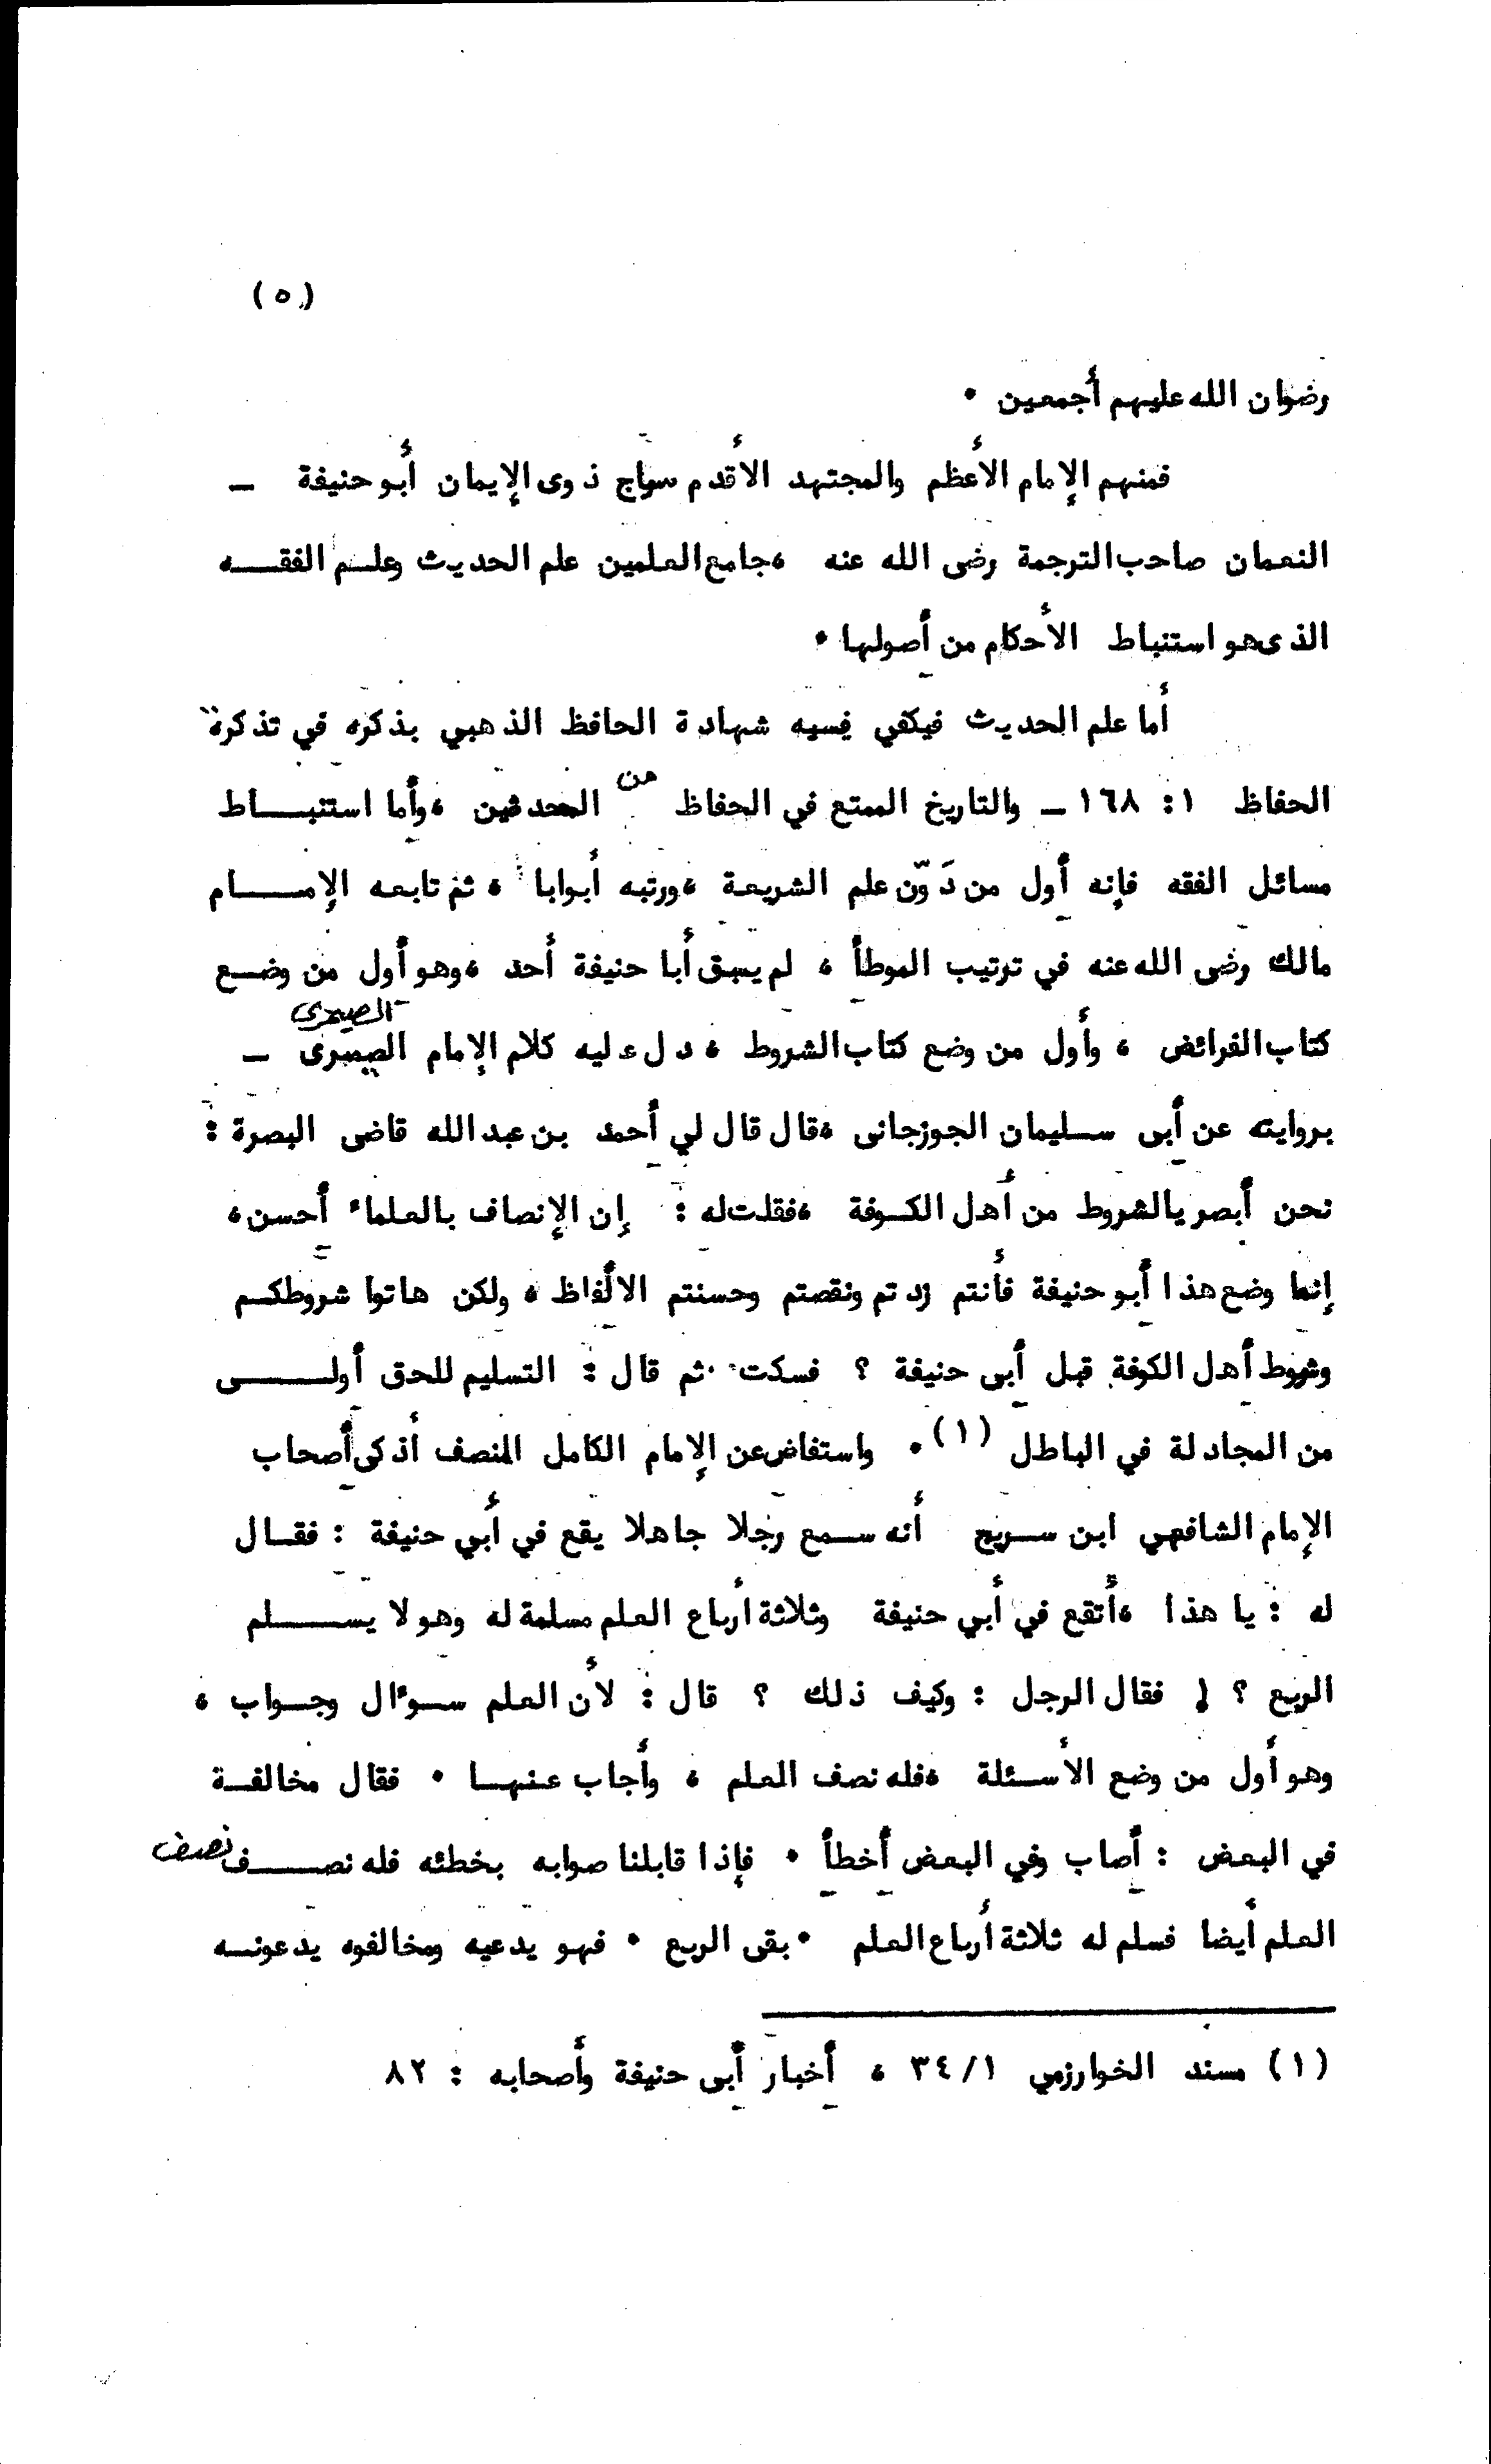 (٥)
رضوان الله عليهم أجمعين .
فمنهم الإمام الأعظم والمجتهد الأقدم سراج ذوى الإيمان أبو حنيفة –
النعمان صاحب الترجمة رضى الله عنه ، جامع العلمين علم الحديث وعلم الفقه
الذى هو استنباط الأحكام من أصولها .
أما علم الحديث فيكفي فيه شهادة الحافظ الذهبي بذكره في تذكرة
الحفاظ ١ : ١٦٨ – والتاريخ الممتع في الحفاظ من المحدثين ، وأما استنباط
مسائل الفقه فإنه أول من دَوّن علم الشريعة ، ورتبه أبوابا ، ثم تابعه الإمام
مالك رضى الله عنه في ترتيب الموطأ ، لم يسبق أبا حنيفة أحد ، وهو أول من وضع
الصيمرى
كتاب الفرائض ، وأول من وضع كتاب الشروط ، دل عليه كلام الإمام الصيمرى –
بروايته عن أبى سليمان الجوزجانى ، قال قال لي أحمد بن عبد الله قاضى البصرة :
نحن أبصر بالشروط من أهل الكوفة ، فقلت له : إن الإنصاف بالعلماء أحسن ،
إنما وضع هذا أبو حنيفة فأنتم زدتم ونقصتم وحسنتم الالفاظ ، ولكن هاتوا شروطكم
وشروط أهل الكوفة قبل أبى حنيفة ؟ فسكت . ثم قال : التسليم للحق أولى
من المجادلة في الباطل (١) . واستفاض عن الإمام الكامل المنصف أذكى أصحاب
الإمام الشافعي ابن سريج أنه سمع رجلا جاهلا يقع في أبي حنيفة : فقال
له : يا هذا ، أتقع في أبي حنيفة وثلاثة أرباع العلم مسلمة له وهو لا يسلم
الربع ؟ ! فقال الرجل : وكيف ذلك ؟ قال : لأن العلم سؤال وجواب ،
وهو أول من وضع الأسئلة ، فله نصف العلم ، وأجاب عنها . فقال مخالفة
في البعض : أصاب وفي البعض أخطأ . فإذا قابلنا صوابه بخطئه فله نصف نصف
العلم أيضا فسلم له ثلاثة أرباع العلم . بقى الربع . فهو يدعيه ومخالفوه يدعونه
(١) مسند الخوارزمي ٣٤/١ ، أخبار أبى حنيفة وأصحابه : ٨٢